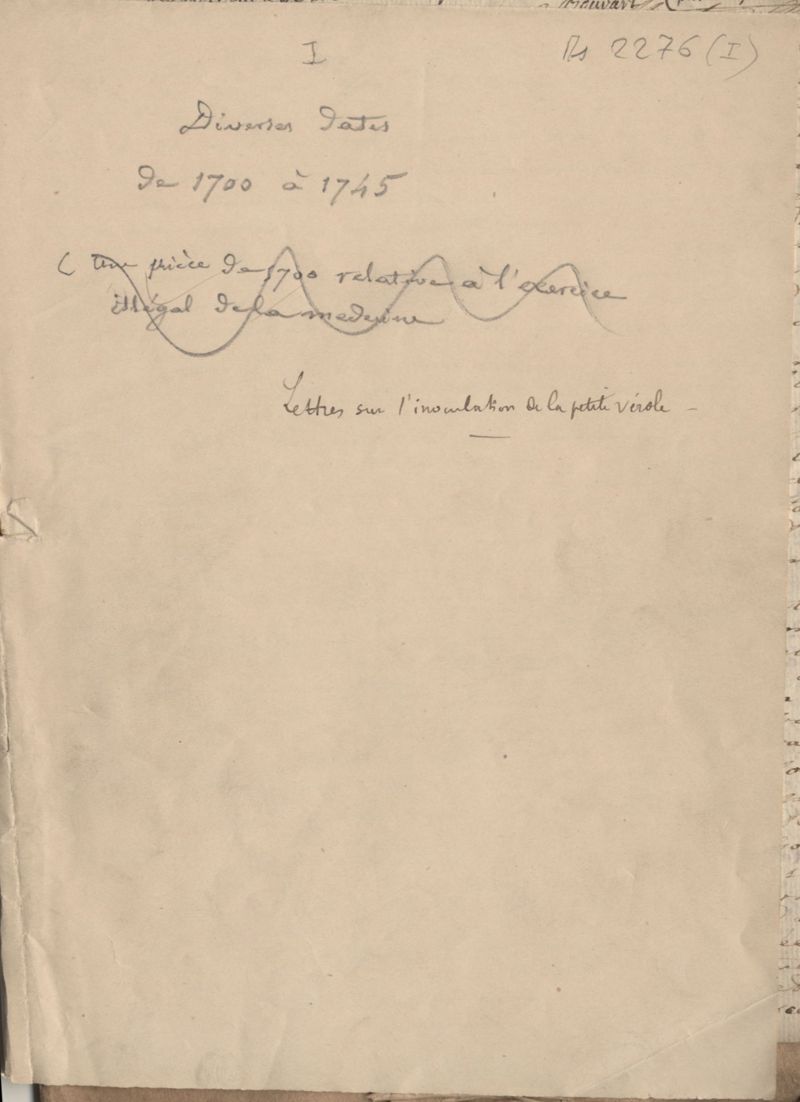 I
Ms 2276 (I)
Diverses dates
de 1700 à 1745
( Une pièce de 1700 relative à l'exercice
illégal de la medecine
Lettres sur l'inoculation de la petite vérole –